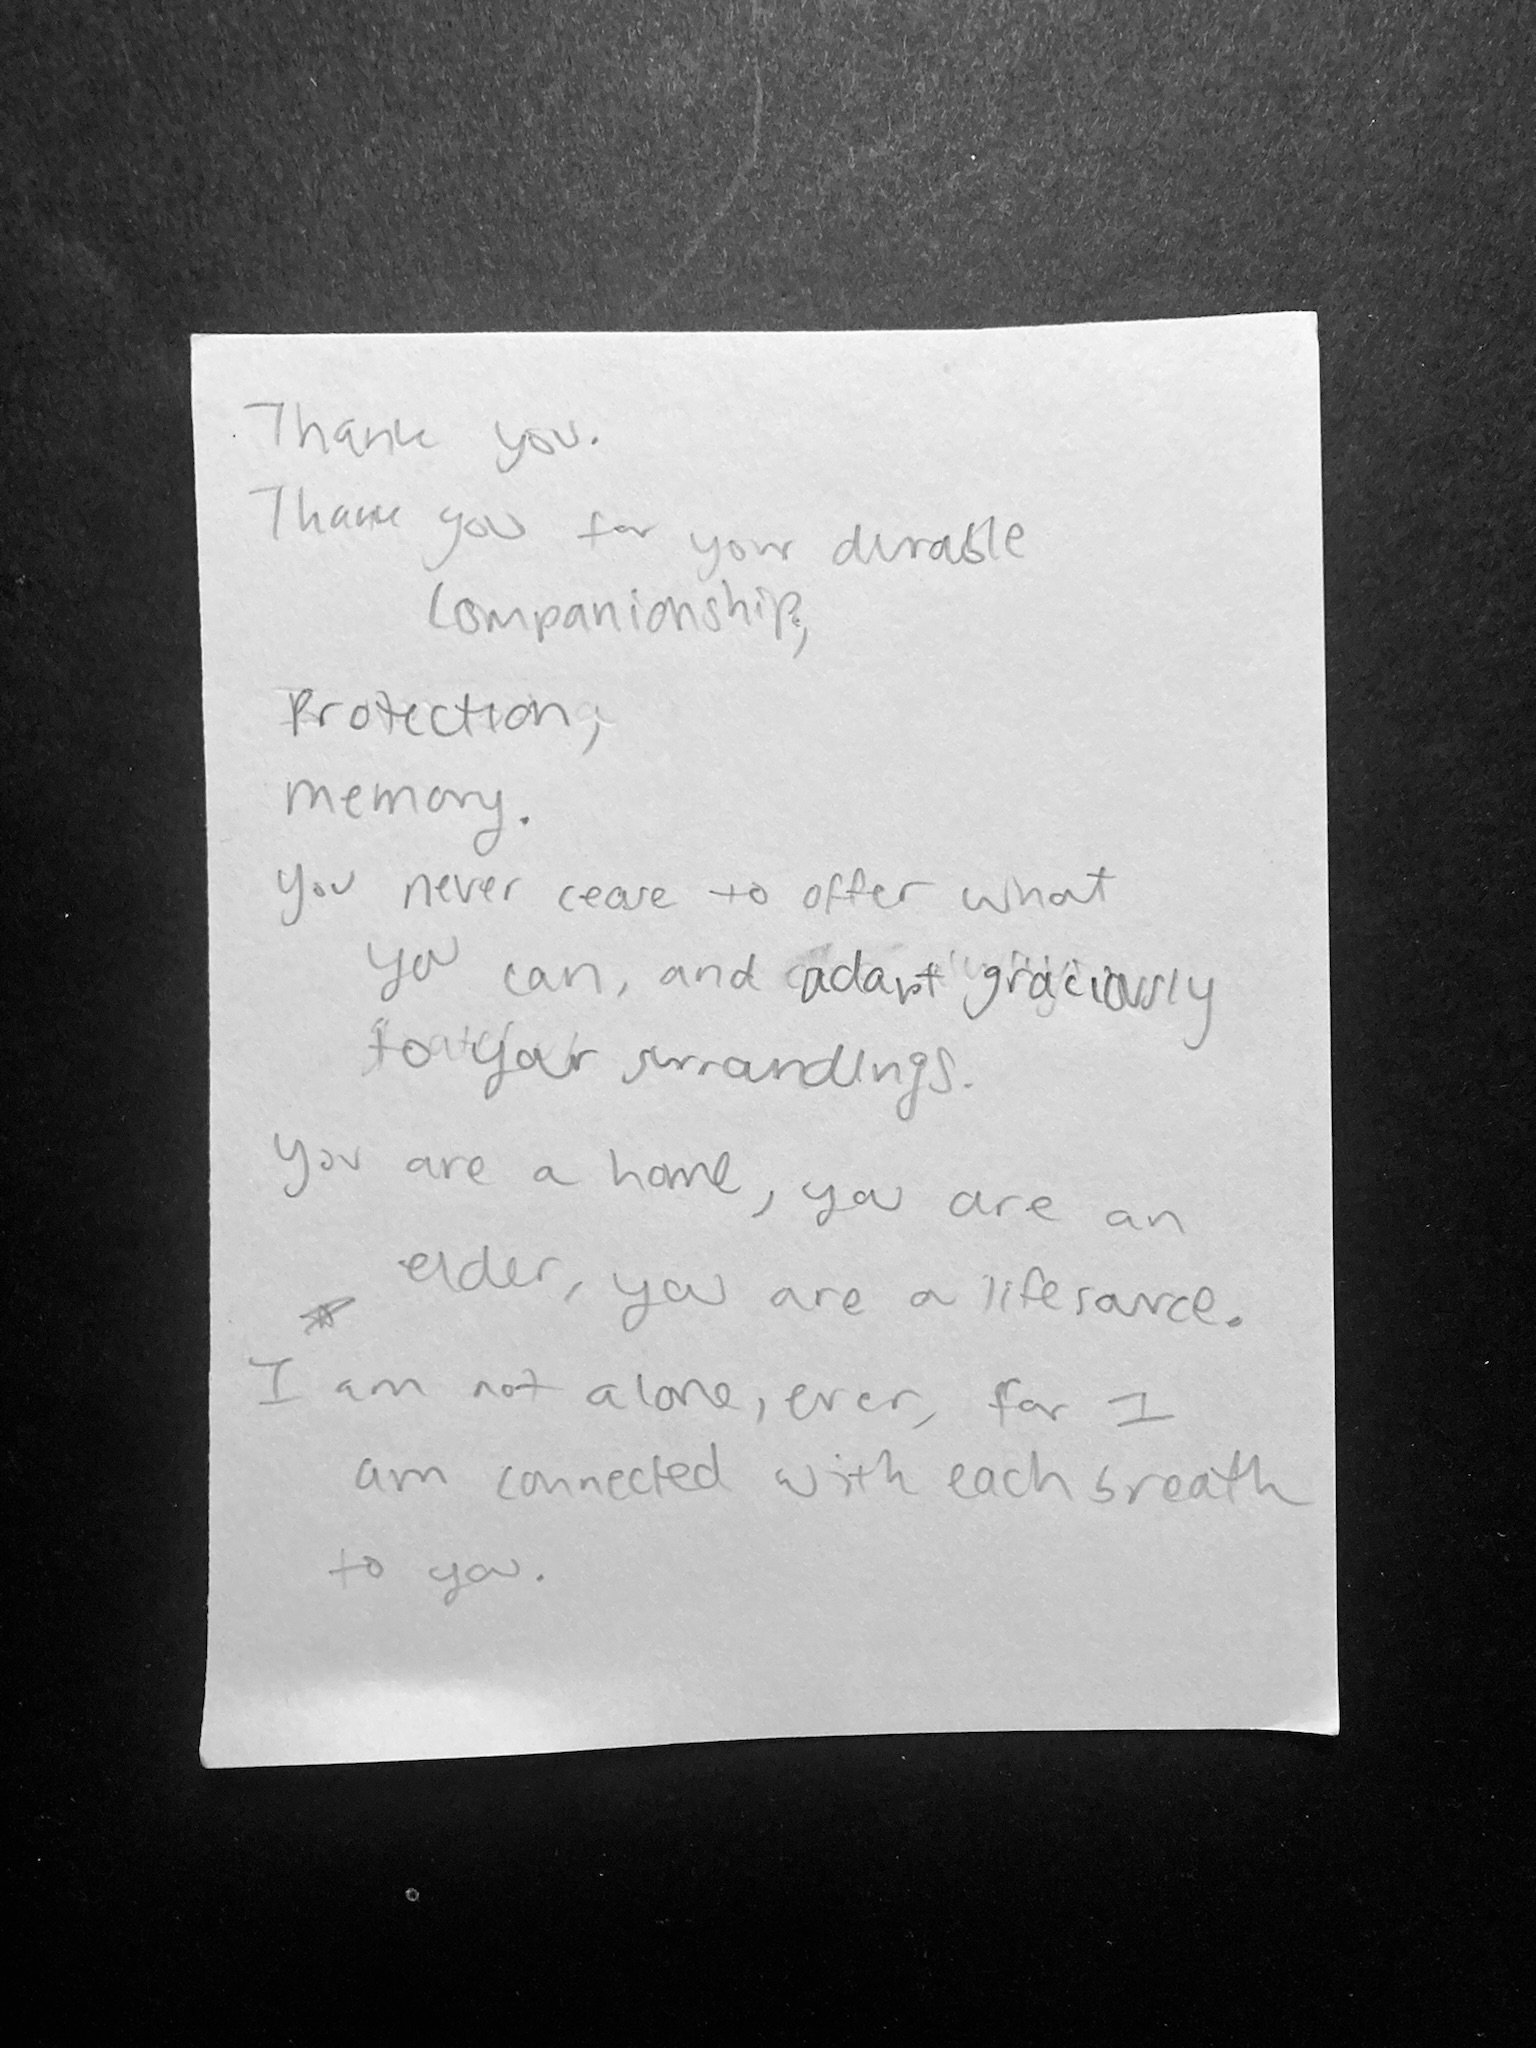 Thank you.
Thank you for your durable
companionship,
Protection,
memory.
You never cease to offer what
you can, and adapt graciously
to your surroundings.
You are a home, you are an
elder, you are a lifesource.
I am not alone, ever, for I
am connected with each breath
to you.